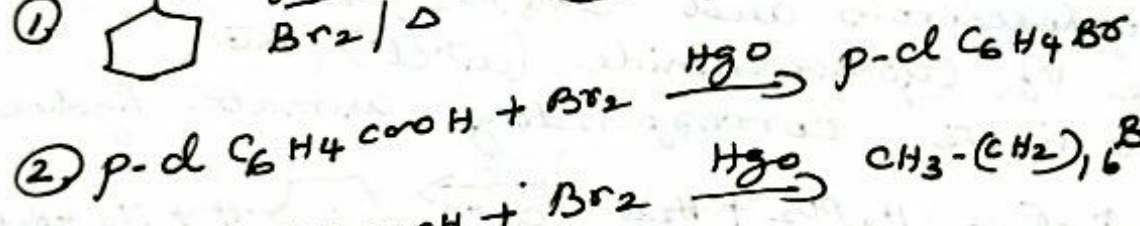 ① Br2/Δ
② p-cl C6H4 COOH + Br2 HgO p-cl C6H4 Br
+ Br2 HgO CH3-(CH2)16 B